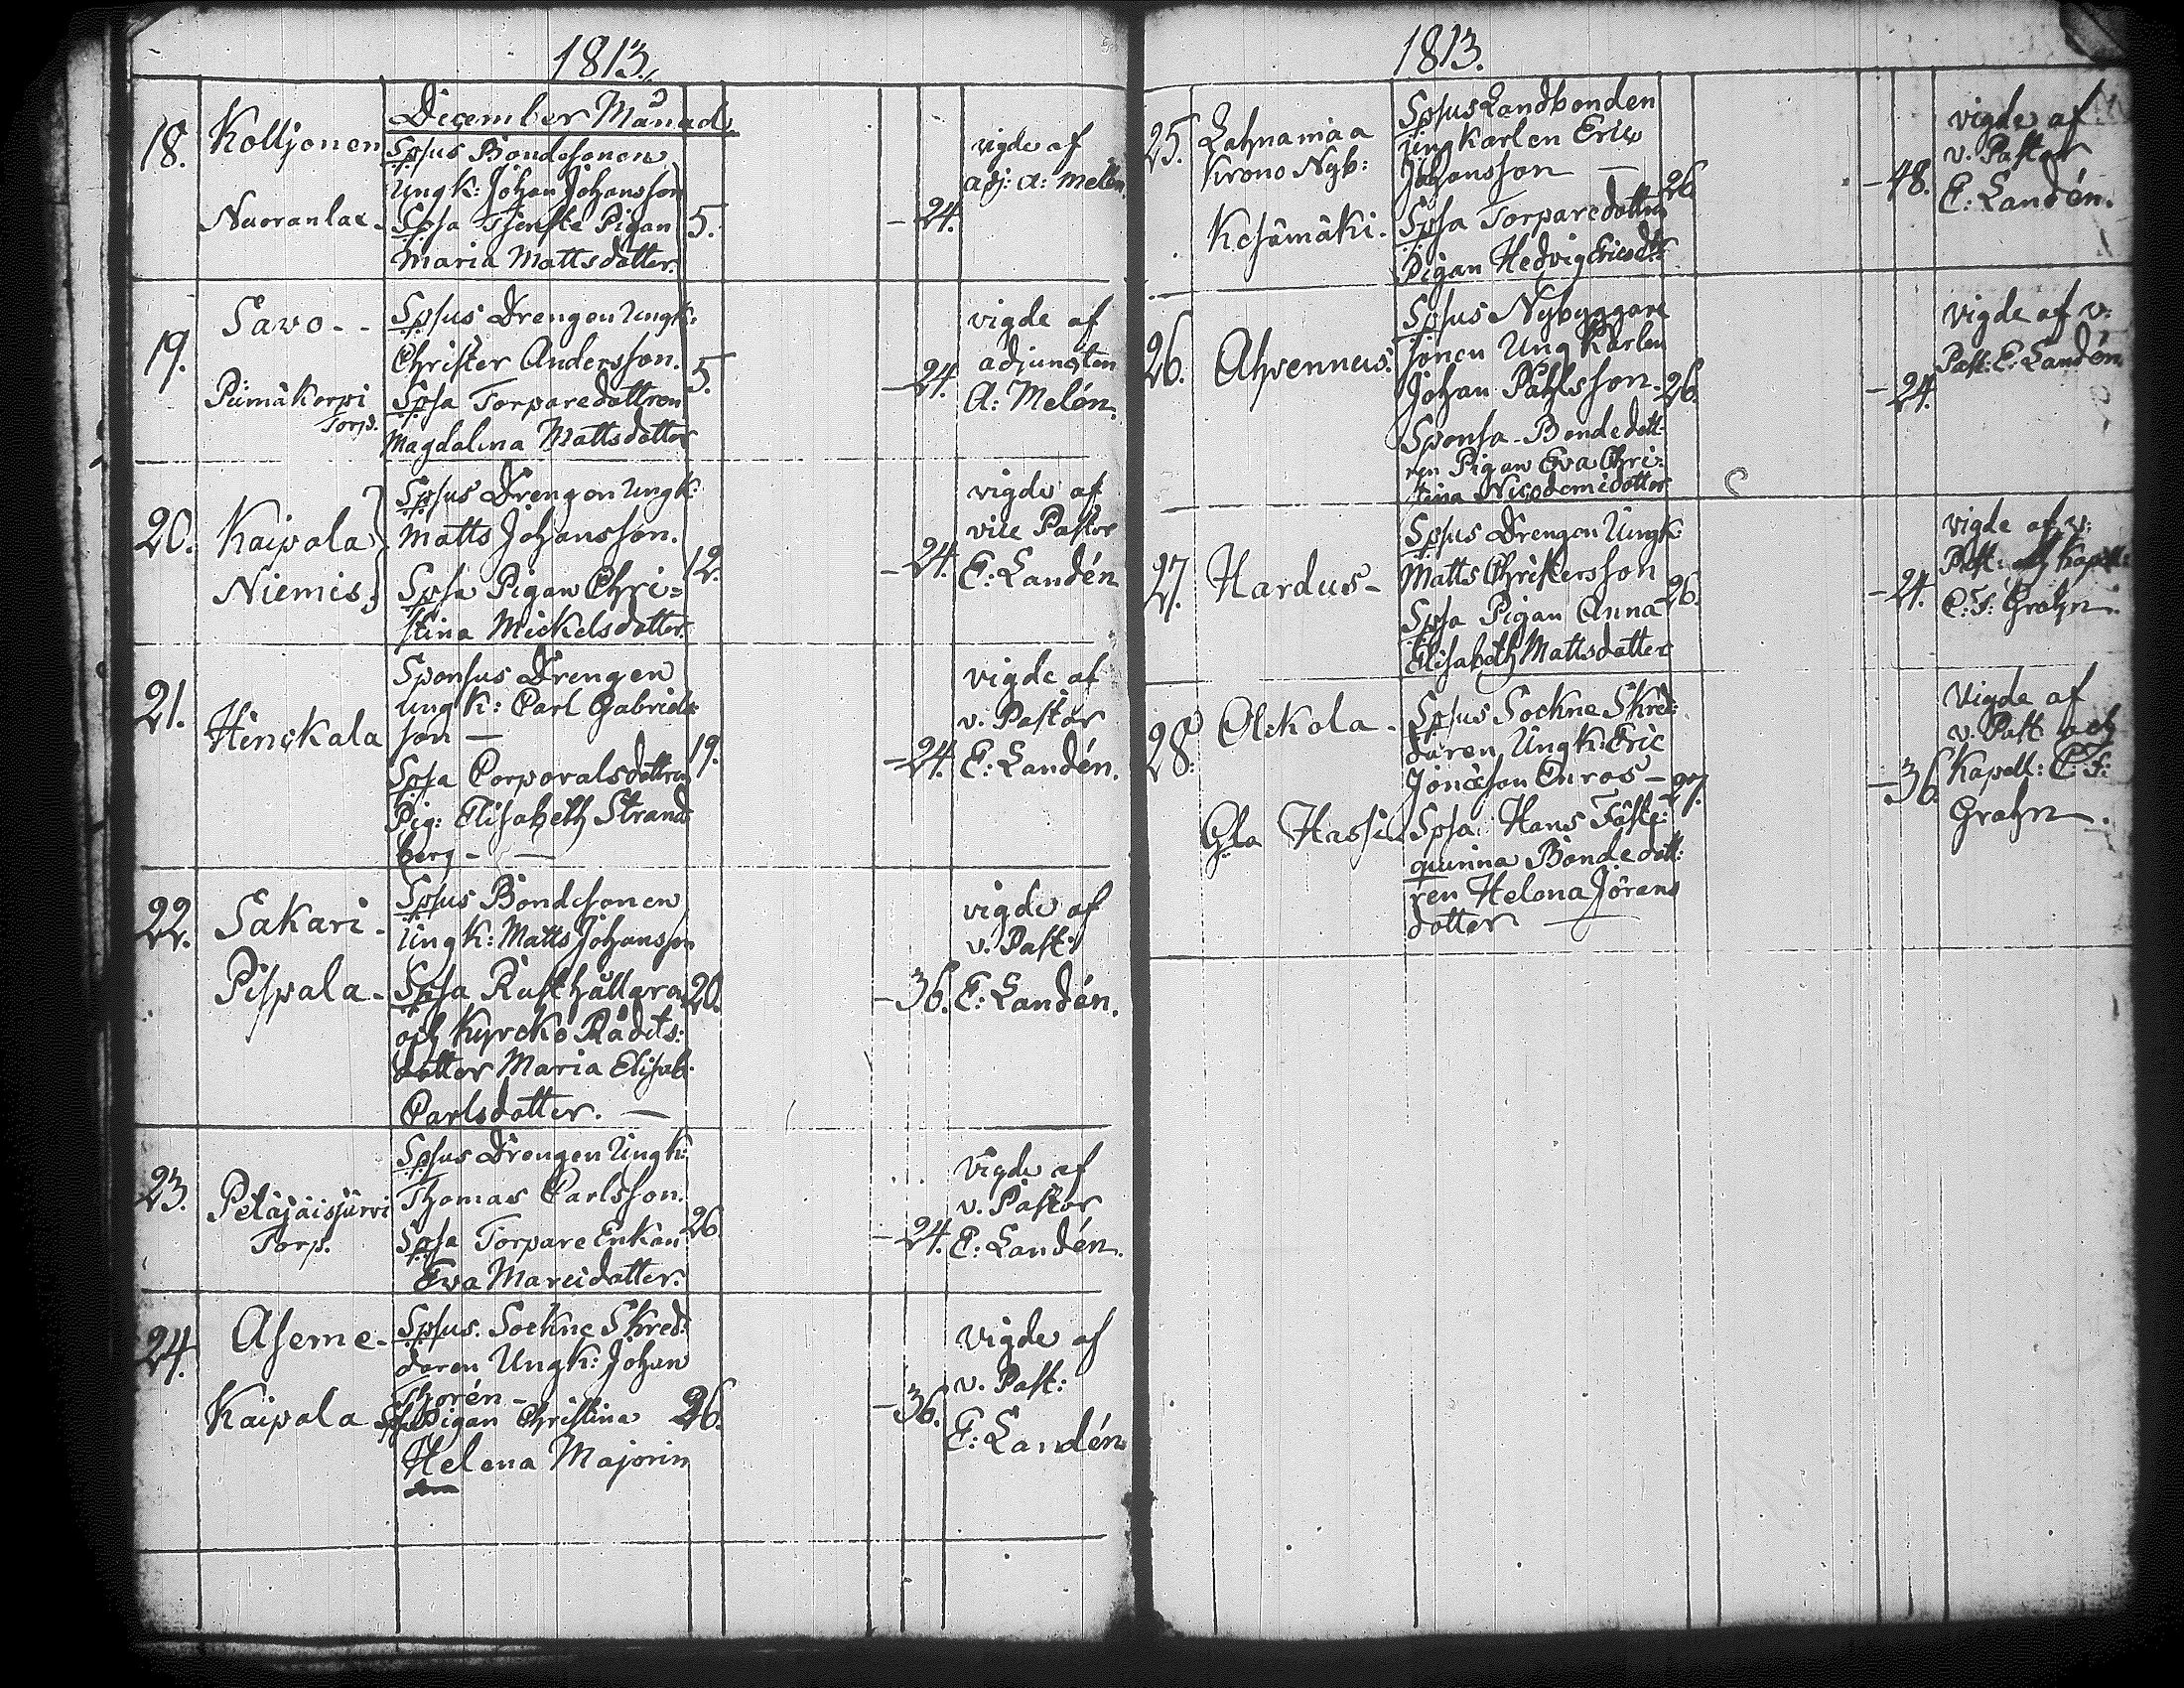 1813.
December Månad
18. Kolljonen
Spsus Bondesonen
Ungk: Johan Johansson
Nuoranlax.
Spsa Tjenste Pigan 5. - 24.
Maria Mattsdotter.
vigde af
adj: A: Melén.
19. Savo - -
Spsus Drengen Ungk:
Christer Andersson.
Piimäkorpi
Torp.
Spsa Torparedottren 5. - 24.
Magdalena Mattsdotter
vigde af
adjuncten
A: Melén.
20. Kaipala
Niemis.
Spsus Drengen Ungk:
Matts Johansson.
Spsa Pigan Chri= 12. - 24.
stina Mickelsdotter.
vigde af
vice Pastor
E: Landén
21. Hinckala
Sponsus Drengen
Ungk: Carl Gabriels
son —
Spsa Corporalsdottren 19. - 24.
Pig: Elisabeth Strand
berg - —
vigde af
v. Pastor
E: Landén.
22. Sakari -
Pispala -
Spsus Bondesonen
Ungk: Matts Johansson
Spsa Rusthållare 20. - 36.
och Kyrcko Rådets:
dotter Maria Elisab.
Carlsdotter. —
vigde af
v. Past:
E: Landén.
23. Petäjäisjärvi
Torp.
Spsus Drengen Ungk:
Thomas Carlsson.
Spsa Torpare Enkan 26. - 24.
Eva Marcidotter.
Vigde af
v. Pastor
E: Landén.
24. Aseme -
Kaipala
Spsus. Sockne Skred:
daren Ungk: Johan
Thorén -
Spsa Pigan Christina 26. - 36.
Helena Majorin
vigde af
v. Past:
E: Landén
1813.
25. Lahnamaa
Krono Nyb:
Kesämäki.
Spsus Landbonden
Ungkarlen Eric
Johansson — 26. - 48.
Spsa Torparedottren
Pigan Hedvig Ericsdr
vigde af
v. Pastor
E: Landén.
26. Ahvennus.
Spsus Nybyggare
sonen Ung Karlen
Johan Påhlsson. 26. - 24.
Sponsa - Bondedott-
ren Pigan Eva Chri=
stina Nicodemidotter
vigde af v:
Past: E: Landén.
27. Hardus -
Spsus Drengen Ungk:
Matts Christersson
Spsa Pigan Anna 26. - 24.
Elisabeth Mattsdotter
vigde af v:
Past: och Kapell:
C: F: Grahn.
28. Olckola -
Gla Hassi
Spsus Sockne Skred:
daren Ungk: Eric
Jonæson Enros - 27. - 36.
Spsa: Hans Fäste:
quinna Bondedott:
ren Helena Jörans
dotter —
Vigde af
v. Past och
Kapell: C: F:
Grahn.